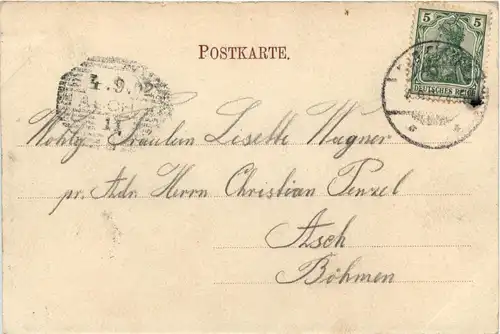 5
DEUTSCHES REICH
POSTKARTE.
4.9.02
ASCH
Wohlg. Fräulein Lisette Wagner
pr. Adr. Herrn Christian Penzel
Asch
Böhmen